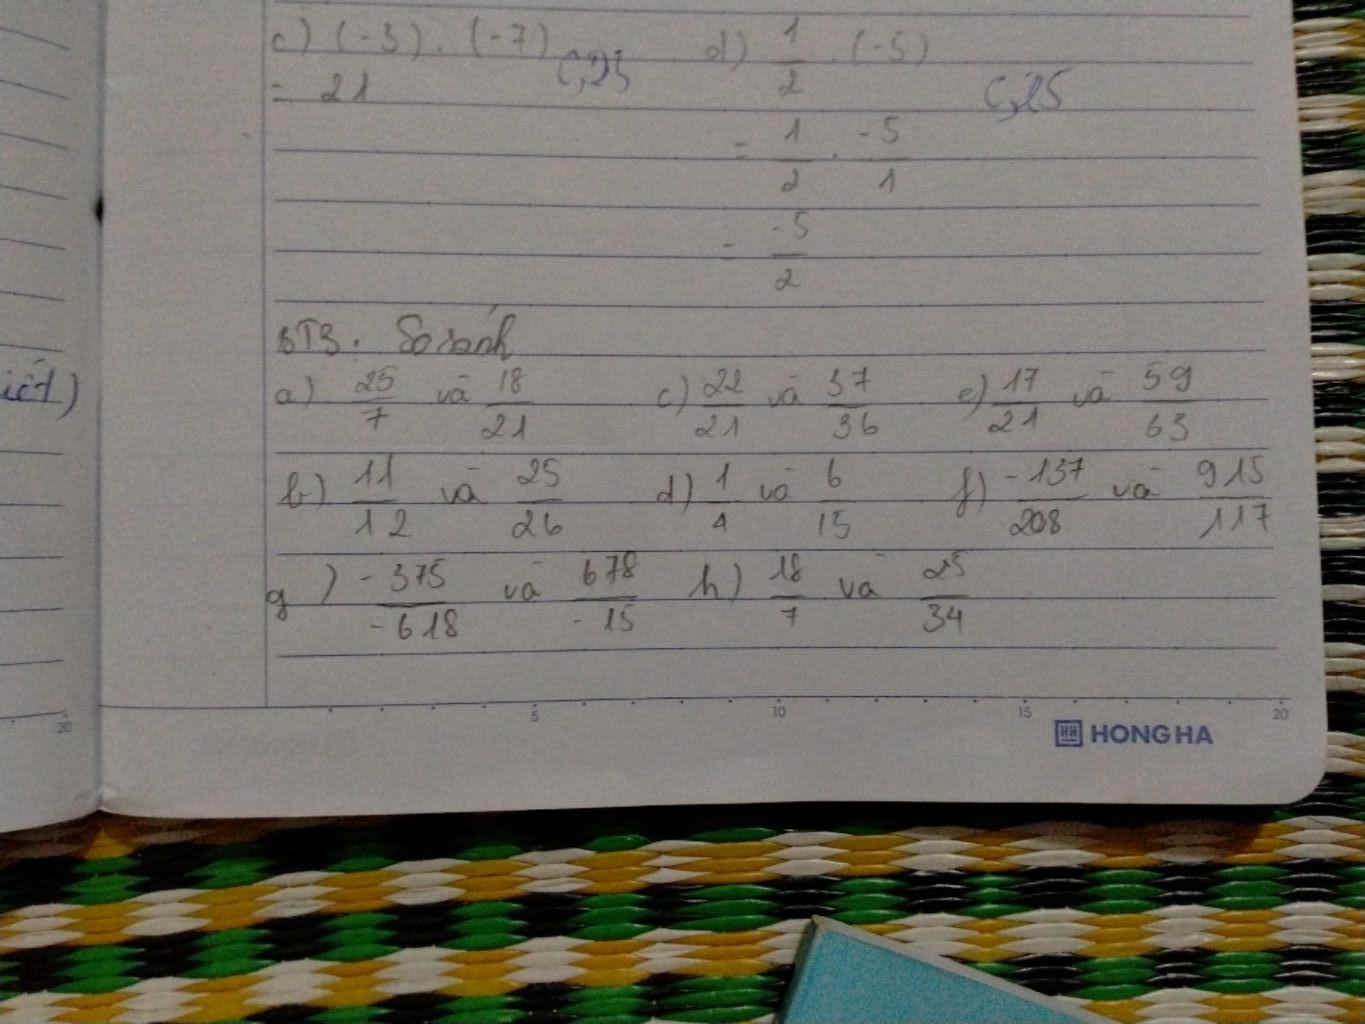 c) (-3) . (-7) 0,25 d) 1/2 . (-5) 0,25
= 21
= 1/2 . -5/1
= -5/2
BT3. So sánh
iết)
a) 25/7 và 18/21 c) 22/21 và 37/36 e) 17/21 và 59/63
b) 11/12 và 25/26 d) 1/4 và 6/15 f) -137/208 và 915/117
g) -375/-618 và 678/-15 h) 18/7 và 25/34
20 5 10 15 20
HH HONG HA